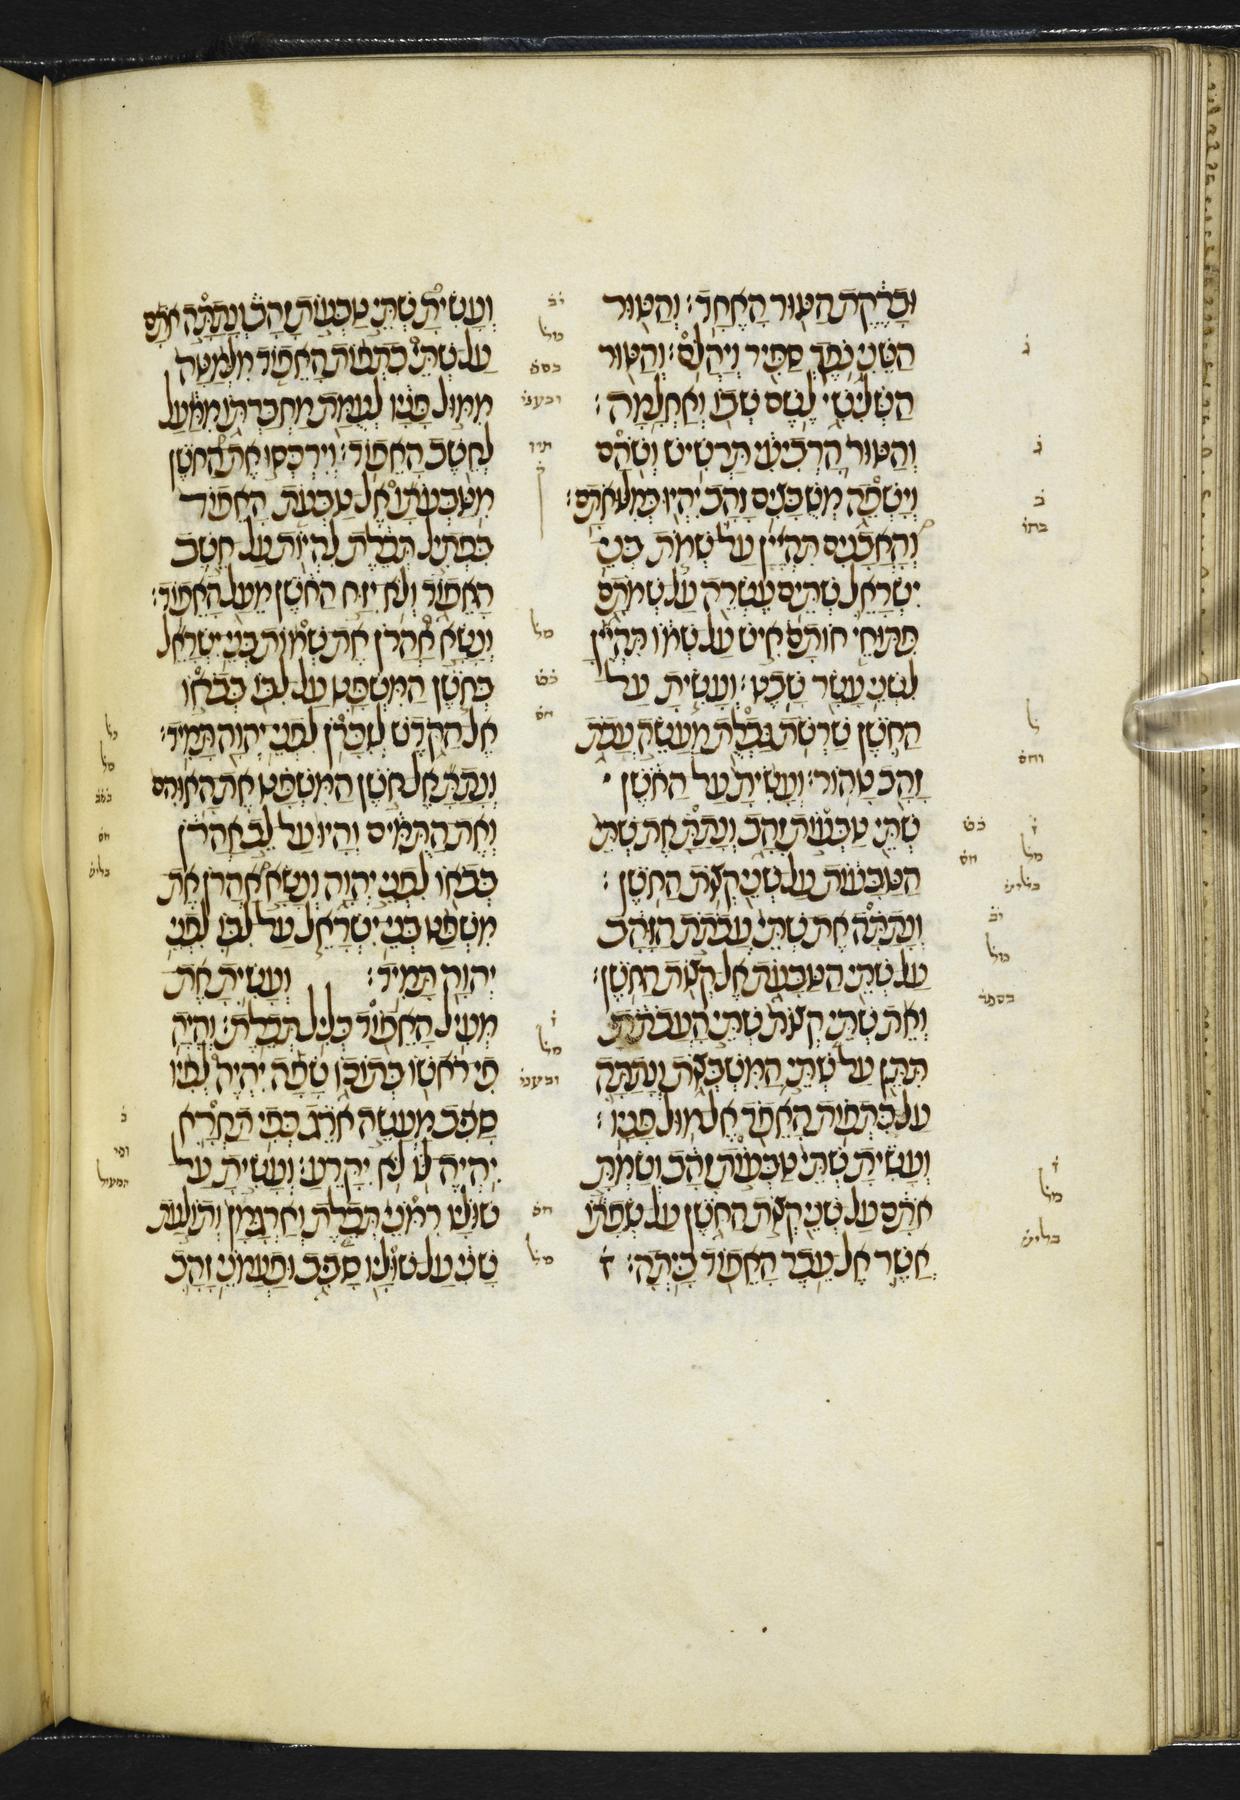 וּבָרֶקֶת הַטּוּר הָאֶחָד׃ וְהַטּוּר
הַשֵּׁנִי נֹפֶךְ סַפִּיר וְיָהֲלֹם׃ וְהַטּוּר
הַשְּׁלִישִׁי לֶשֶׁם שְׁבוֹ וְאַחְלָמָה׃
וְהַטּוּר הָרְבִיעִי תַּרְשִׁישׁ וְשֹׁהַם
וְיָשְׁפֵה מְשֻׁבָּצִים זָהָב יִהְיוּ בְּמִלּוּאֹתָם׃
וְהָאֲבָנִים תִּהְיֶיןָ עַל שְׁמֹת בְּנֵי
יִשְׂרָאֵל שְׁתֵּים עֶשְׂרֵה עַל שְׁמֹתָם
פִּתּוּחֵי חוֹתָם אִישׁ עַל שְׁמוֹ תִּהְיֶיןָ
לִשְׁנֵי עָשָׂר שָׁבֶט׃ וְעָשִׂיתָ עַל
הַחֹשֶׁן שַׁרְשֹׁת גַּבְלֻת מַעֲשֵׂה עֲבֹת
זָהָב טָהוֹר׃ וְעָשִׂיתָ עַל הַחֹשֶׁן
שְׁתֵּי טַבְּעוֹת זָהָב וְנָתַתָּ אֶת שְׁתֵּי
הַטַּבָּעוֹת עַל שְׁנֵי קְצוֹת הַחֹשֶׁן׃
וְנָתַתָּה אֶת שְׁתֵּי עֲבֹתֹת הַזָּהָב
עַל שְׁתֵּי הַטַּבָּעֹת אֶל קְצוֹת הַחֹשֶׁן׃
וְאֵת שְׁתֵּי קְצוֹת שְׁתֵּי הָעֲבֹתֹת
תִּתֵּן עַל שְׁתֵּי הַמִּשְׁבְּצוֹת וְנָתַתָּה
עַל כִּתְפוֹת הָאֵפֹד אֶל מוּל פָּנָיו׃
וְעָשִׂיתָ שְׁתֵּי טַבְּעוֹת זָהָב וְשַׂמְתָּ
אֹתָם עַל שְׁנֵי קְצוֹת הַחֹשֶׁן עַל שְׂפָתוֹ
אֲשֶׁר אֶל עֵבֶר הָאֵפוֹד בָּיְתָה׃
וְעָשִׂיתָ שְׁתֵּי טַבְּעוֹת זָהָב וְנָתַתָּה אֹתָם
עַל שְׁתֵּי כִתְפוֹת הָאֵפוֹד מִלְּמַטָּה
מִמּוּל פָּנָיו לְעֻמַּת מַחְבַּרְתּוֹ מִמַּעַל
לְחֵשֶׁב הָאֵפוֹד׃ וְיִרְכְּסוּ אֶת הַחֹשֶׁן
מִטַּבְּעֹתָו אֶל טַבְּעֹת הָאֵפוֹד
בִּפְתִיל תְּכֵלֶת לִהְיוֹת עַל חֵשֶׁב
הָאֵפוֹד וְלֹא יִזַּח הַחֹשֶׁן מֵעַל הָאֵפוֹד׃
וְנָשָׂא אַהֲרֹן אֶת שְׁמוֹת בְּנֵי יִשְׂרָאֵל
בְּחֹשֶׁן הַמִּשְׁפָּט עַל לִבּוֹ בְּבֹאוֹ
אֶל הַקֹּדֶשׁ לְזִכָּרֹן לִפְנֵי יְהוָה תָּמִיד׃
וְנָתַתָּ אֶל חֹשֶׁן הַמִּשְׁפָּט אֶת הָאוּרִים
וְאֶת הַתֻּמִּים וְהָיוּ עַל לֵב אַהֲרֹן
בְּבֹאוֹ לִפְנֵי יְהוָה וְנָשָׂא אַהֲרֹן אֶת
מִשְׁפַּט בְּנֵי יִשְׂרָאֵל עַל לִבּוֹ לִפְנֵי
יְהוָה תָּמִיד׃ וְעָשִׂיתָ אֶת
מְעִיל הָאֵפוֹד כְּלִיל תְּכֵלֶת׃ וְהָיָה
פִי רֹאשׁוֹ בְּתוֹכוֹ שָׂפָה יִהְיֶה לְפִיו
סָבִיב מַעֲשֵׂה אֹרֵג כְּפִי תַחְרָא
יִהְיֶה לּוֹ לֹא יִקָּרֵעַ׃ וְעָשִׂיתָ עַל
שׁוּלָיו רִמֹּנֵי תְּכֵלֶת וְאַרְגָּמָן וְתוֹלַעַת
שָׁנִי עַל שׁוּלָיו סָבִיב וּפַעֲמֹנֵי זָהָב